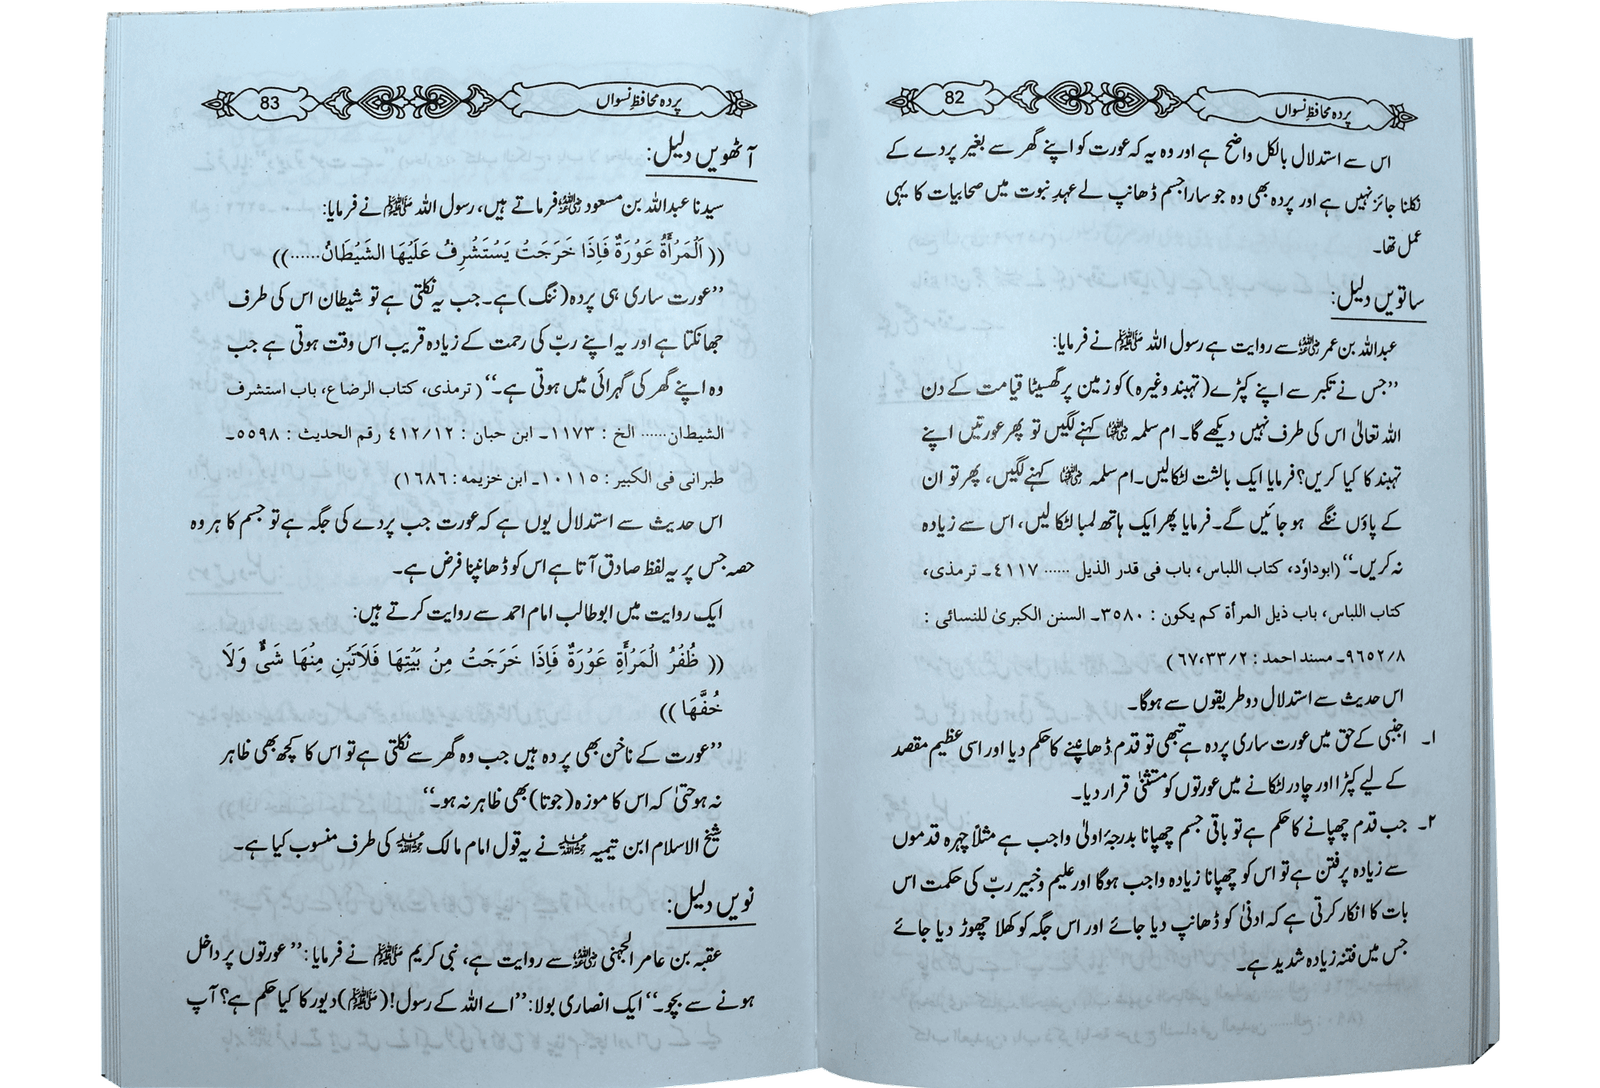 پردہ محافظِ نسواں 82
اس سے استدلال بالکل واضح ہے اور وہ یہ کہ عورت کو اپنے گھر سے بغیر پردے کے
نکلنا جائز نہیں ہے اور پردہ بھی وہ جو سارا جسم ڈھانپ لے عہدِ نبوت میں صحابیات کا یہی
عمل تھا۔
ساتویں دلیل:
عبداللہ بن عمر رضی اللہ عنہ سے روایت ہے رسول اللہ ﷺ نے فرمایا:
’’جس نے تکبر سے اپنے کپڑے (تہبند وغیرہ) کو زمین پر گھسیٹا قیامت کے دن
اللہ تعالیٰ اس کی طرف نہیں دیکھے گا۔ ام سلمہ رضی اللہ عنہا کہنے لگیں تو پھر عورتیں اپنے
تہبند کا کیا کریں؟ فرمایا ایک بالشت لٹکا لیں۔ ام سلمہ رضی اللہ عنہا کہنے لگیں، پھر تو ان
کے پاؤں ننگے ہو جائیں گے۔ فرمایا پھر ایک ہاتھ لمبا لٹکا لیں، اس سے زیادہ
نہ کریں۔‘‘ (ابوداؤد، کتاب اللباس، باب فی قدر الذیل ...... ٤١١٧۔ ترمذی،
کتاب اللباس، باب ذیل المرأۃ کم یکون : ٣٥٨٠۔ السنن الکبریٰ للنسائی :
٩٦٥٢/٨۔ مسند احمد : ٦٧،٣٣/٢)
اس حدیث سے استدلال دو طریقوں سے ہوگا۔
۱۔ اجنبی کے حق میں عورت ساری پردہ ہے تبھی تو قدم ڈھانپنے کا حکم دیا اور اسی عظیم مقصد
کے لیے کپڑا اور چادر لٹکانے میں عورتوں کو مستثنیٰ قرار دیا۔
۲۔ جب قدم چھپانے کا حکم ہے تو باقی جسم چھپانا بدرجۂ اولیٰ واجب ہے مثلاً چہرہ قدموں
سے زیادہ پر فتن ہے تو اس کو چھپانا زیادہ واجب ہوگا اور علیم و خبیر ربّ کی حکمت اس
بات کا انکار کرتی ہے کہ ادنیٰ کو ڈھانپ دیا جائے اور اس جگہ کو کھلا چھوڑ دیا جائے
جس میں فتنہ زیادہ شدید ہے۔
پردہ محافظِ نسواں 83
آٹھویں دلیل:
سیدنا عبداللہ بن مسعود رضی اللہ عنہ فرماتے ہیں، رسول اللہ ﷺ نے فرمایا:
(( اَلْمَرْأَةُ عَوْرَةٌ فَاِذَا خَرَجَتْ يَسْتَشْرِفُ عَلَيْهَا الشَّيْطَانُ......))
’’عورت ساری ہی پردہ (ننگ) ہے۔ جب یہ نکلتی ہے تو شیطان اس کی طرف
جھانکتا ہے اور یہ اپنے ربّ کی رحمت کے زیادہ قریب اس وقت ہوتی ہے جب
وہ اپنے گھر کی گہرائی میں ہوتی ہے۔‘‘ (ترمذی، کتاب الرضاع، باب استشرف
الشیطان...... الخ : ١١٧٣۔ ابن حبان : ٤١٢/١٢ رقم الحدیث : ٥٥٩٨۔
طبرانی فی الکبیر : ١٠١١٥۔ ابن خزیمہ : ١٦٨٦)
اس حدیث سے استدلال یوں ہے کہ عورت جب پردے کی جگہ ہے تو جسم کا ہر وہ
حصہ جس پر یہ لفظ صادق آتا ہے اس کو ڈھانپنا فرض ہے۔
ایک روایت میں ابو طالب امام احمد سے روایت کرتے ہیں:
(( ظُفُرُ الْمَرْأَةِ عَوْرَةٌ فَاِذَا خَرَجَتْ مِنْ بَيْتِهَا فَلَاتَبِنِ مِنْهَا شَيْءٌ وَلَا
خُفَّهَا ))
’’عورت کے ناخن بھی پردہ ہیں جب وہ گھر سے نکلتی ہے تو اس کا کچھ بھی ظاہر
نہ ہو حتیٰ کہ اس کا موزہ (جوتا) بھی ظاہر نہ ہو۔‘‘
شیخ الاسلام ابن تیمیہ رحمہ اللہ نے یہ قول امام مالک رحمہ اللہ کی طرف منسوب کیا ہے۔
نویں دلیل:
عقبہ بن عامر الجہنی رضی اللہ عنہ سے روایت ہے، نبی کریم ﷺ نے فرمایا: ’’عورتوں پر داخل
ہونے سے بچو۔‘‘ ایک انصاری بولا: ’’اے اللہ کے رسول! (ﷺ) دیور کا کیا حکم ہے؟ آپ